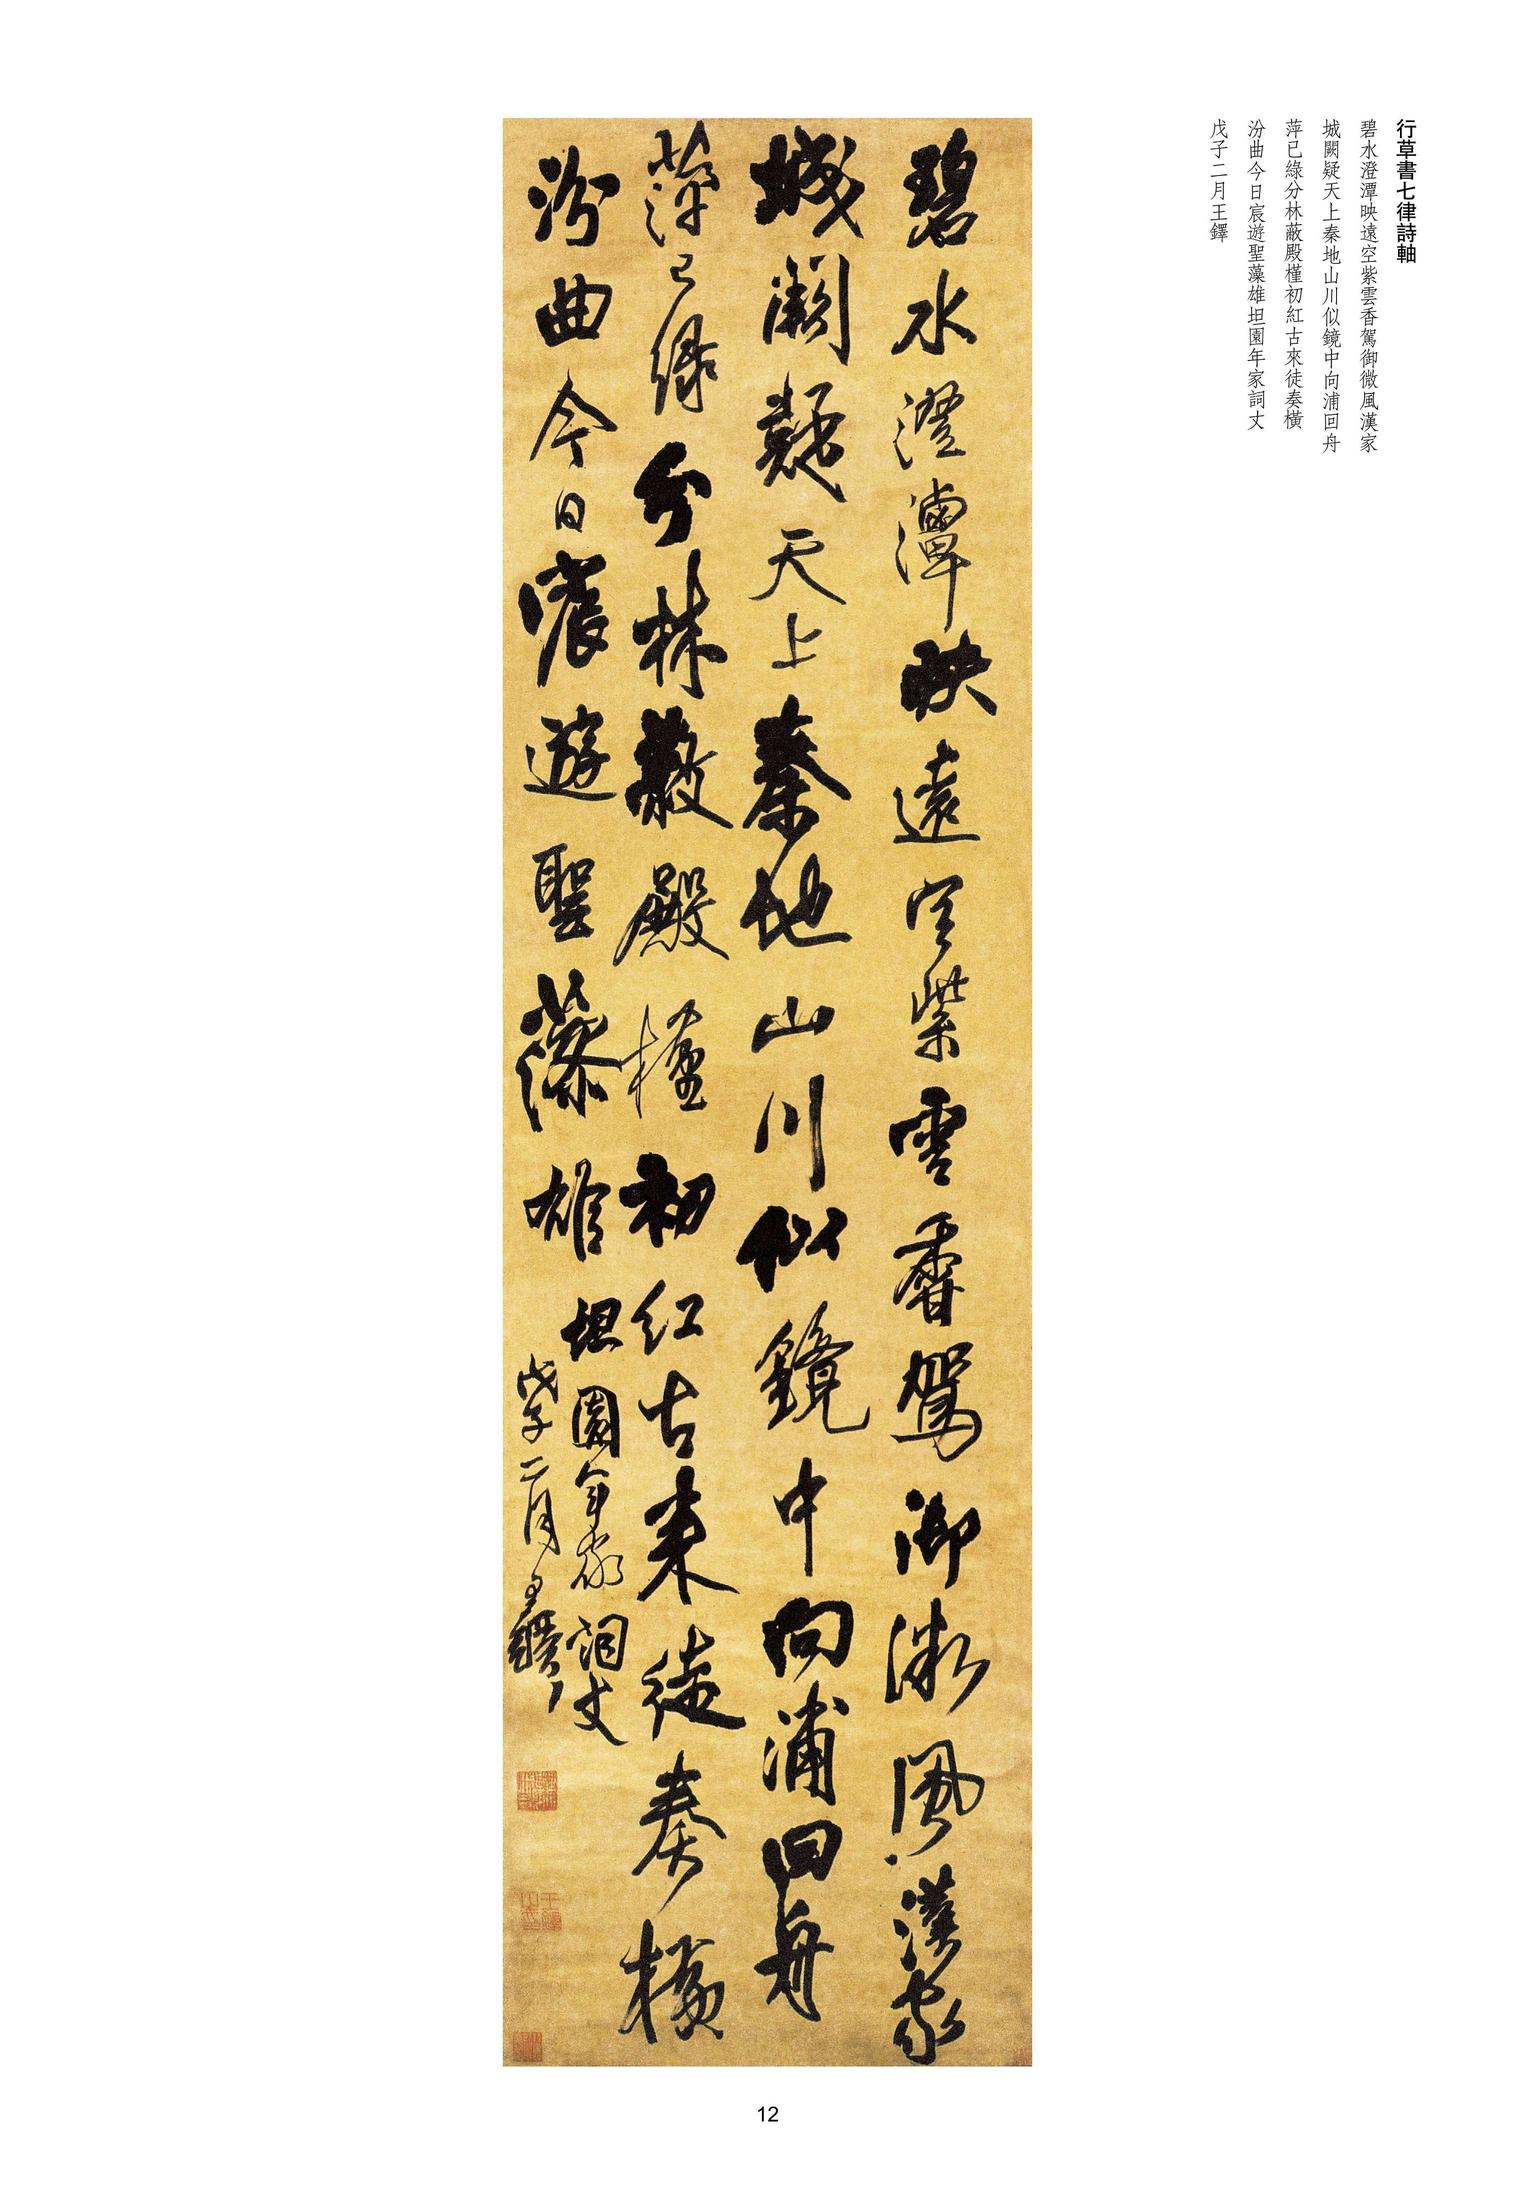 行草書七律詩軸
碧水澄潭映遠空紫雲香駕御微風漢家
城闕疑天上秦地山川似鏡中向浦回舟
萍已綠分林蔽殿槿初紅古來徒奏橫
汾曲今日宸遊聖藻雄坦園年家詞丈
戊子二月王鐸
碧水澄潭映遠空紫雲香駕御微風漢家
城闕疑天上秦地山川似鏡中向浦回舟
萍已綠分林蔽殿槿初紅古來徒奏橫
汾曲今日宸遊聖藻雄坦園年家詞丈
戊子二月王鐸
12